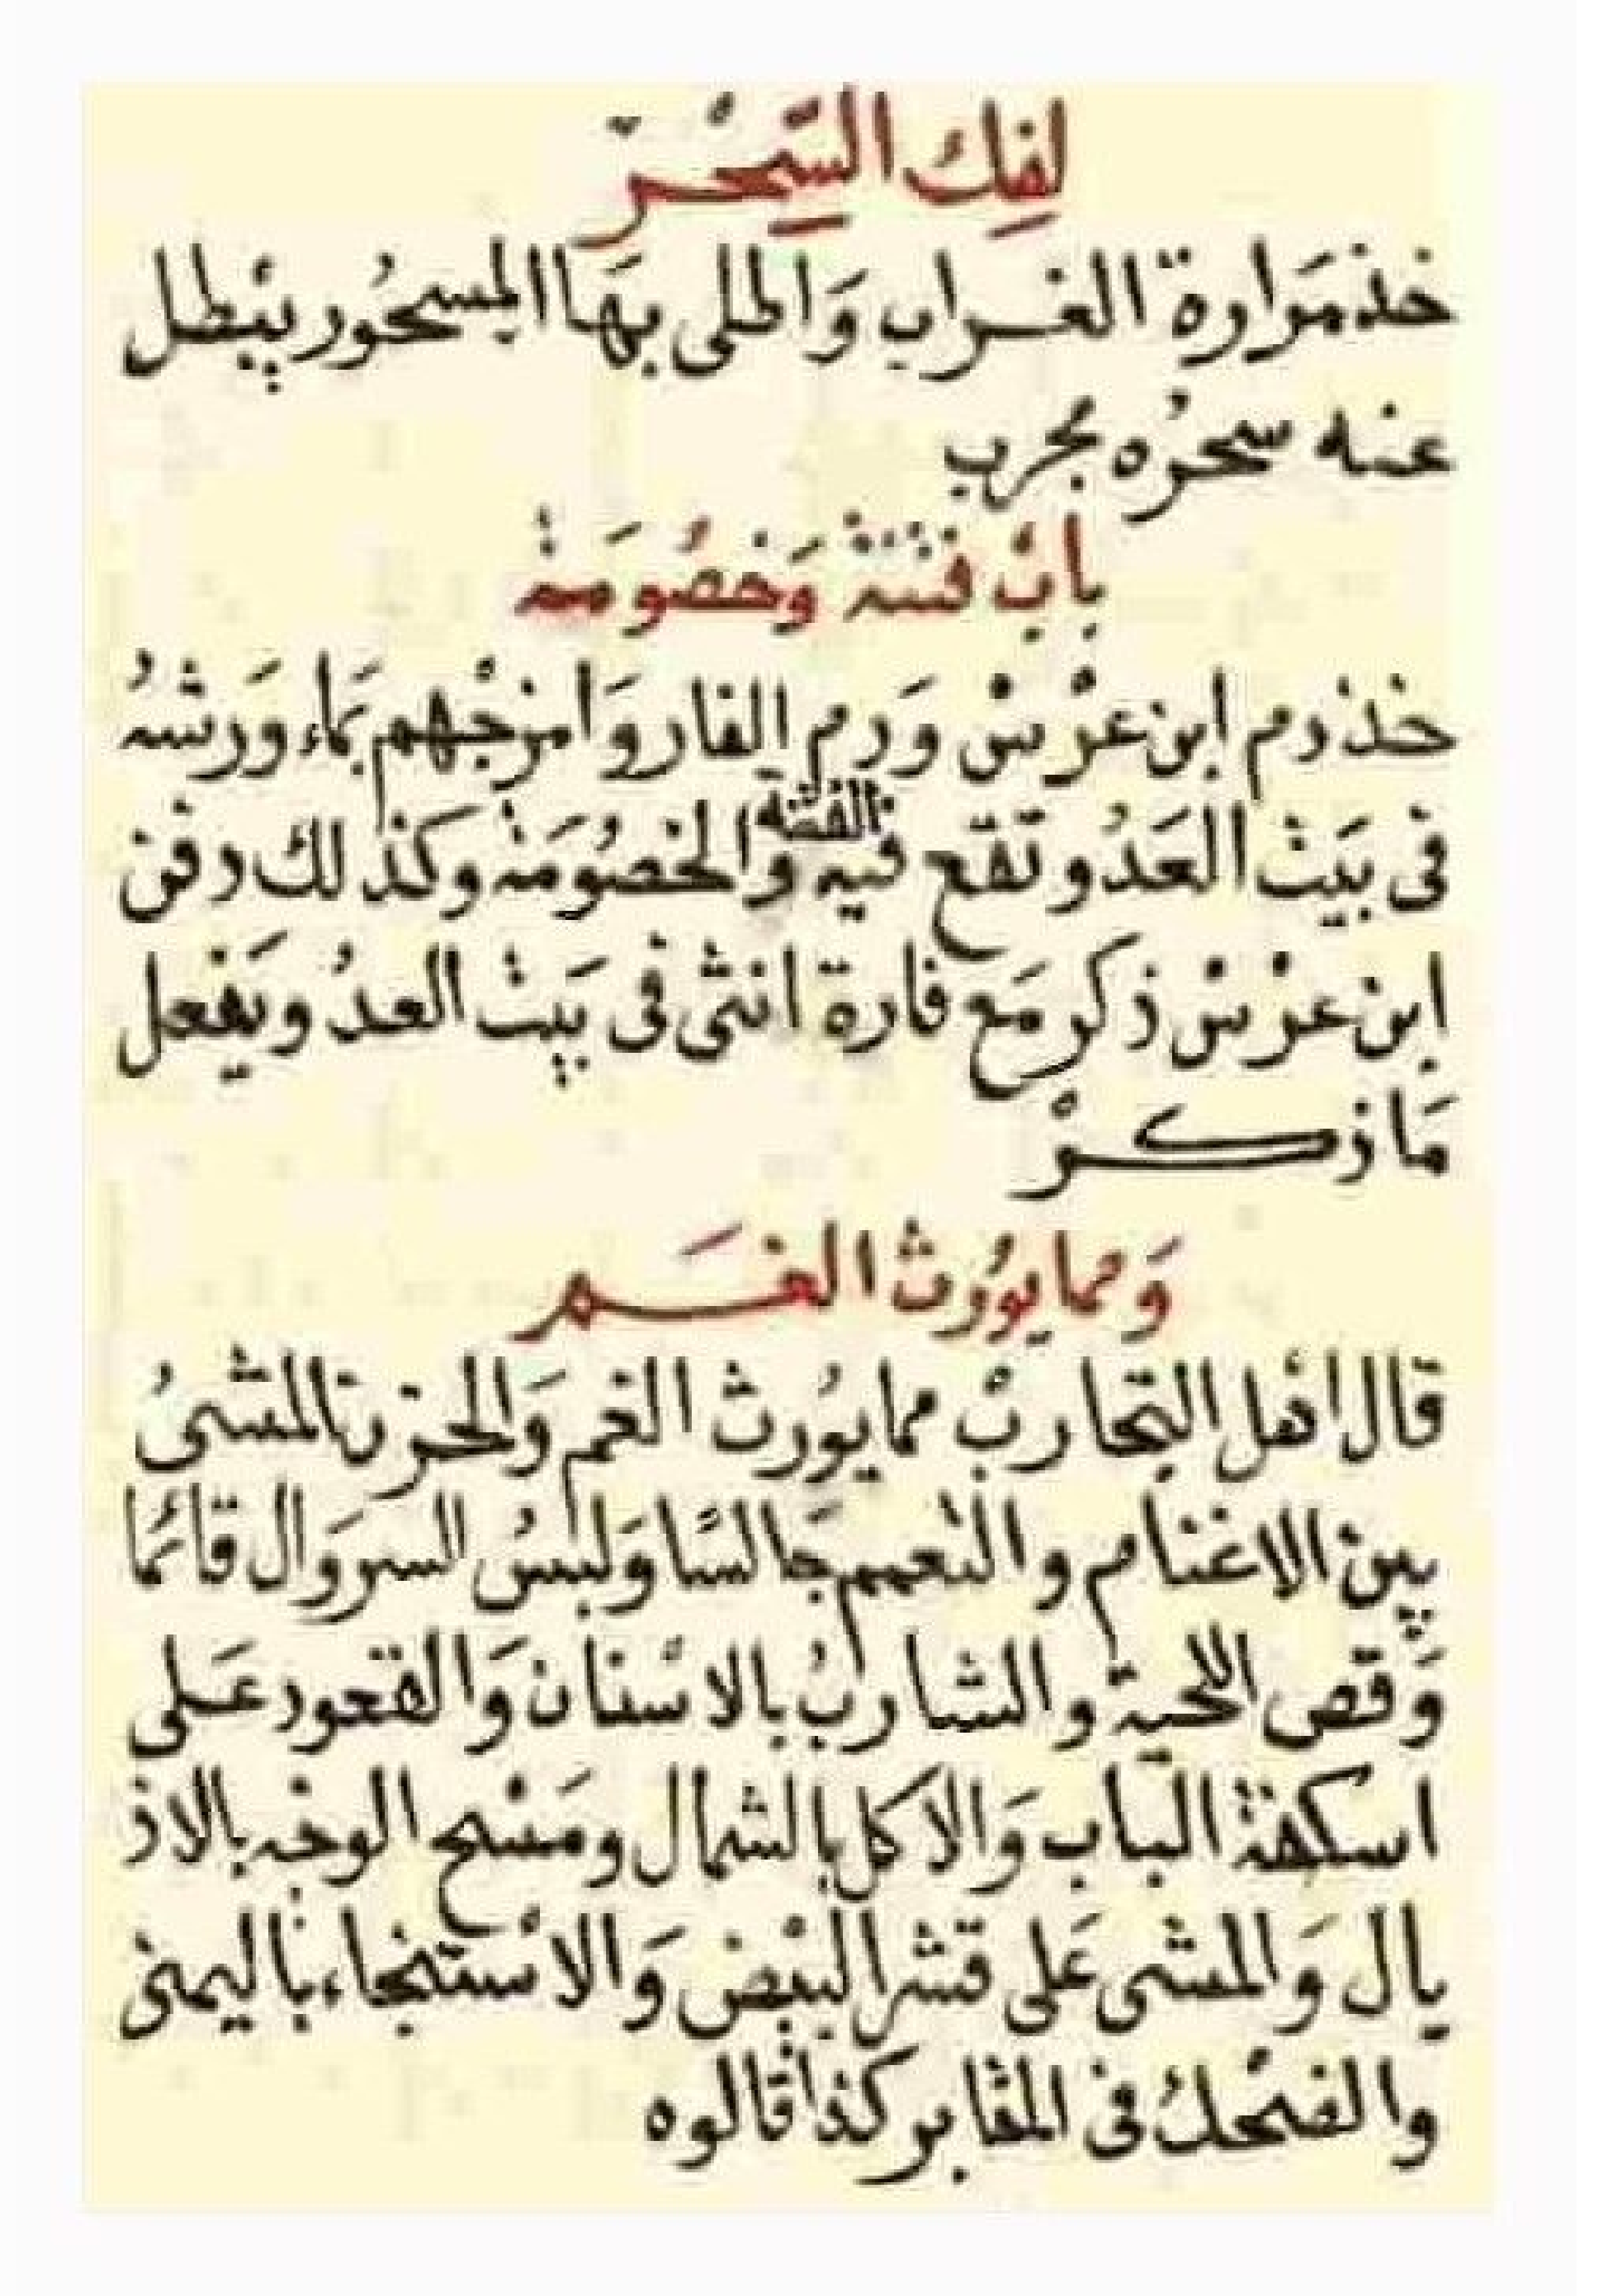 لِفِك السِّحْرْ
خذ مَرارة الغراب وَاطلى بهَا المسحُور يبْطل
عنه سحرُه مجرب
بابْ فتنة وَخصُومَة
خذ دم ابن عرْسْ وَدم الفار وَامزجْهم بمَاء وَرشهُ
فى بيَت العَدُو تقع فيه الفتنة والخصُومَة وكذلك دفن
ابن عرْسْ ذكر مَع فارة انثى فى بيَتْ العدُ ويَفعل
مَا ذكرْ
وَمما يوُرث الغَم
قال اهل التجاربْ مما يوُرث الغم وَالحزن المشىُ
بين الاغنام والتعميم جَالسًا وَلبسُ السروَال قائمَا
وَقص اللحية والشاربُ بالاسْنان وَالقعود عَلى
اسكفة الباب وَالاكل بالشمال ومَسْح الوجْه بالاذ
يال وَالمشى عَلى قشر البيْض وَالاسْتنجاء باليمنى
والضحْكُ فى المقابر كذا قالوه